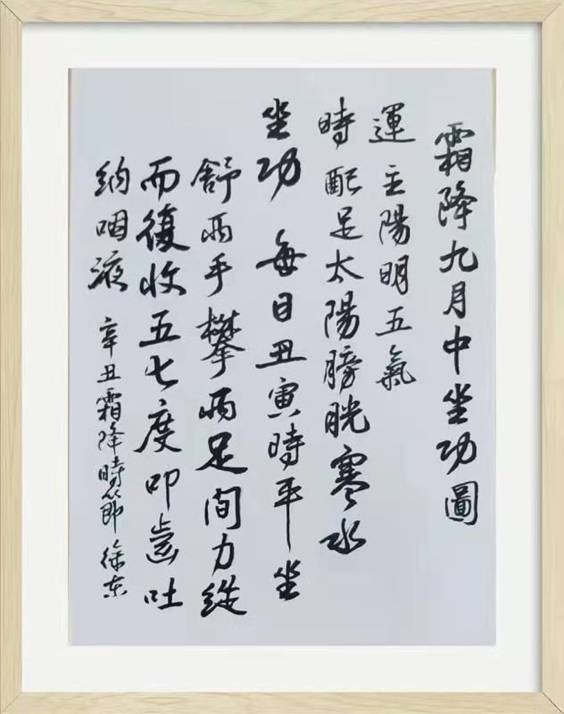 霜降九月中坐功圖
運主陽明五氣
時配足太陽膀胱寒水
坐功 每日丑寅時平坐
舒兩手攀兩足間力縱
而復收五七度叩齒吐
納咽液 辛丑霜降時節 徐東